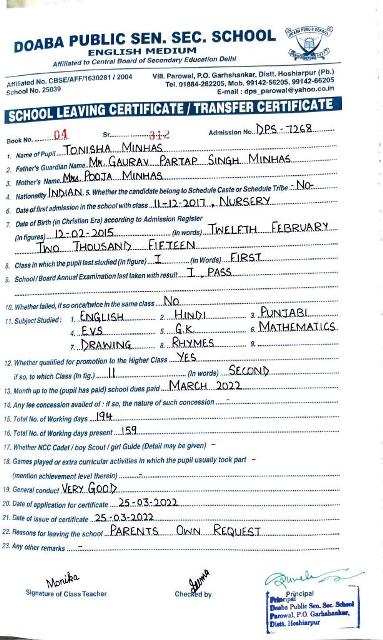 DOABA PUBLIC SEN. SEC. SCHOOL
ENGLISH MEDIUM
Affiliated to Central Board of Secondary Education Delhi
Affiliated No. CBSE/AFF/1630281 / 2004
School No. 25039
Vill. Parowal, P.O. Garhshankar, Distt. Hoshiarpur (Pb.)
Tel. 01884-282205, Mob. 99142-56205, 99142-56206
E-mail : dps_parowal@yahoo.co.in
SCHOOL LEAVING CERTIFICATE / TRANSFER CERTIFICATE
Book No. 04 Sr. 312 Admission No. DPS-7268
1. Name of Pupil TONISHA MINHAS
2. Father's/Guardian Name MR. GAURAV PARTAP SINGH MINHAS
3. Mother's Name MRS. POOJA MINHAS
4. Nationality INDIAN 5. Whether the candidate belong to Schedule Caste or Schedule Tribe :- No-
6. Date of first admission in the school with class 11-12-2017, NURSERY
7. Date of Birth (in Christian Era) according to Admission Register
(in figures) 12-02-2015 (in words) TWELFTH FEBRUARY
TWO THOUSAND FIFTEEN
8. Class in which the pupil last studied (in figure) I (in Words) FIRST
9. School / Board Annual Examination last taken with result I, PASS
10. Whether failed, if so once/twice in the same class NO
11. Subject Studied : 1. ENGLISH 2. HINDI 3. PUNJABI
4. EVS 5. G.K. 6. MATHEMATICS
7. DRAWING 8. RHYMES 9. -
12. Whether qualified for promotion to the Higher Class YES
if so, to which Class (in fig.) II (in words) SECOND
13. Month up to the (pupil has paid) school dues paid MARCH 2022
14. Any fee concession availed of : if so, the nature of such concession -
15. Total No. of Working days 194
16. Total No. of Working days present 159
17. Whether NCC Cadet / boy Scout / girl Guide (Detail may be given) -
18. Games played or extra curricular activities in which the pupil usually took part -
(mention achievement level therein) -
19. General conduct VERY GOOD
20. Date of application for certificate 25-03-2022
21. Date of issue of certificate 25-03-2022
22. Reasons for leaving the school PARENTS OWN REQUEST
23. Any other remarks -
Monika
Signature of Class Teacher
Checked by
Principal
Principal
Doaba Public Sen. Sec. School
Parowal, P.O. Garhshankar,
Distt. Hoshiarpur